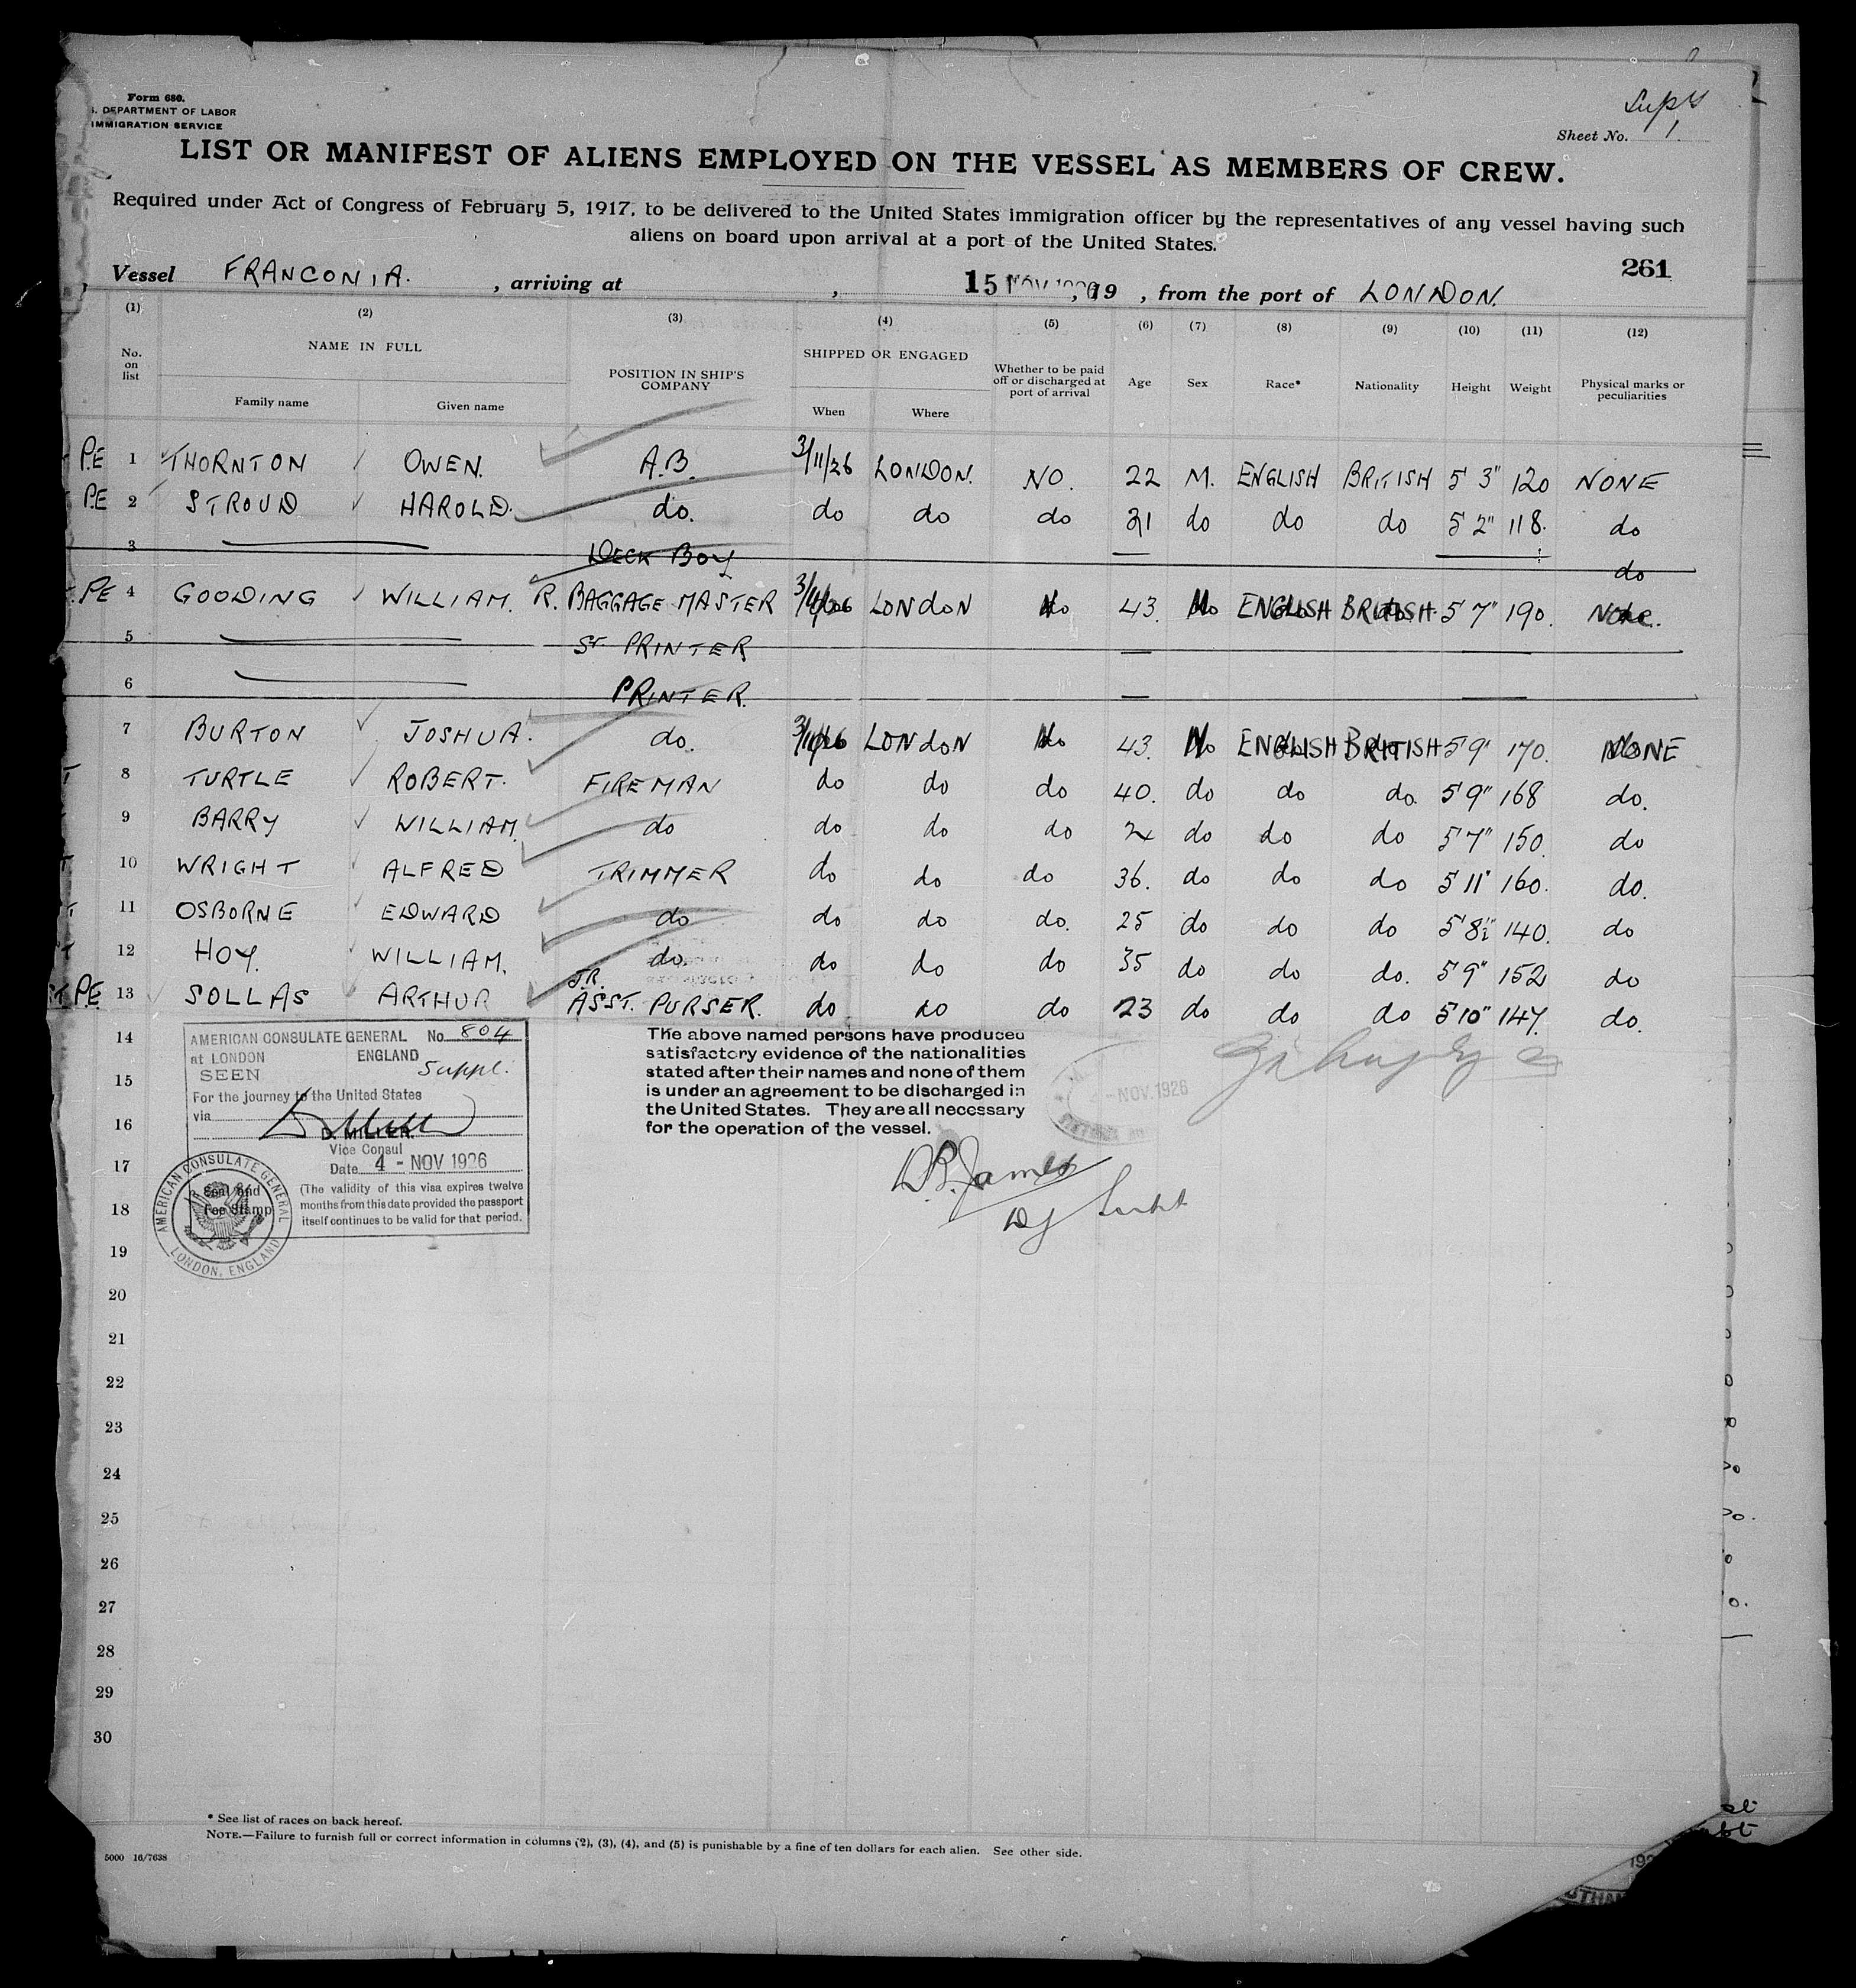 Form 680.
S. DEPARTMENT OF LABOR
IMMIGRATION SERVICE
Sheet No. 1.
LIST OR MANIFEST OF ALIENS EMPLOYED ON THE VESSEL AS MEMBERS OF CREW.
Required under Act of Congress of February 5, 1917, to be delivered to the United States immigration officer by the representatives of any vessel having such
aliens on board upon arrival at a port of the United States.
261
Vessel FRANCONIA. , arriving at , 15 NOV 1926, 19 , from the port of LONDON.
(1) (2) (3) (4) (5) (6) (7) (8) (9) (10) (11) (12)
No. on list NAME IN FULL POSITION IN SHIP'S COMPANY SHIPPED OR ENGAGED Whether to be paid off or discharged at port of arrival Age Sex Race* Nationality Height Weight Physical marks or peculiarities
Family name Given name When Where
P.E 1 THORNTON OWEN. A.B. 3/11/26 LONDON. NO. 22 M. ENGLISH BRITISH 5' 3" 120 NONE
PE 2 STROUD HAROLD. do. do do do 21 do do do 5' 2" 118. do
3 DECK BOY do
PE 4 GOODING WILLIAM. R. BAGGAGE MASTER 3/11/26 LONDON No 43. M ENGLISH BRITISH 5' 7" 190. None.
5 Sr. PRINTER
6 PRINTER.
7 BURTON JOSHUA. do. 3/11/26 LONDON No 43. M ENGLISH BRITISH 5' 9" 170. NONE
8 TURTLE ROBERT. FIREMAN do do do 40. do do do. 5' 9" 168 do.
9 BARRY WILLIAM. do do do do do do do 5' 7" 150. do
10 WRIGHT ALFRED TRIMMER do do do 36. do do do 5' 11" 160. do.
11 OSBORNE EDWARD do do do do. 25 do do do 5' 8½" 140. do
12 HOY. WILLIAM. do. do do do 35 do do do. 5' 9" 152 do
PE 13 SOLLAS ARTHUR JR. ASST. PURSER. do do do 23 do do do 5' 10" 147. do.
14
15
16
17
18
19
20
21
22
23
24
25
26
27
28
29
30
AMERICAN CONSULATE GENERAL No. 804
at LONDON ENGLAND
SEEN Suppl.
For the journey to the United States
via
D. MILLER.
Vice Consul
Date 4 - NOV 1926
(The validity of this visa expires twelve
months from this date provided the passport
itself continues to be valid for that period.
AMERICAN CONSULATE GENERAL
LONDON, ENGLAND
Seal and
Fee Stamp
The above named persons have produced
satisfactory evidence of the nationalities
stated after their names and none of them
is under an agreement to be discharged in
the United States. They are all necessary
for the operation of the vessel.
- NOV. 1926
D.B. James
* See list of races on back hereof.
NOTE.—Failure to furnish full or correct information in columns (2), (3), (4), and (5) is punishable by a fine of ten dollars for each alien. See other side.
5000 16/7638